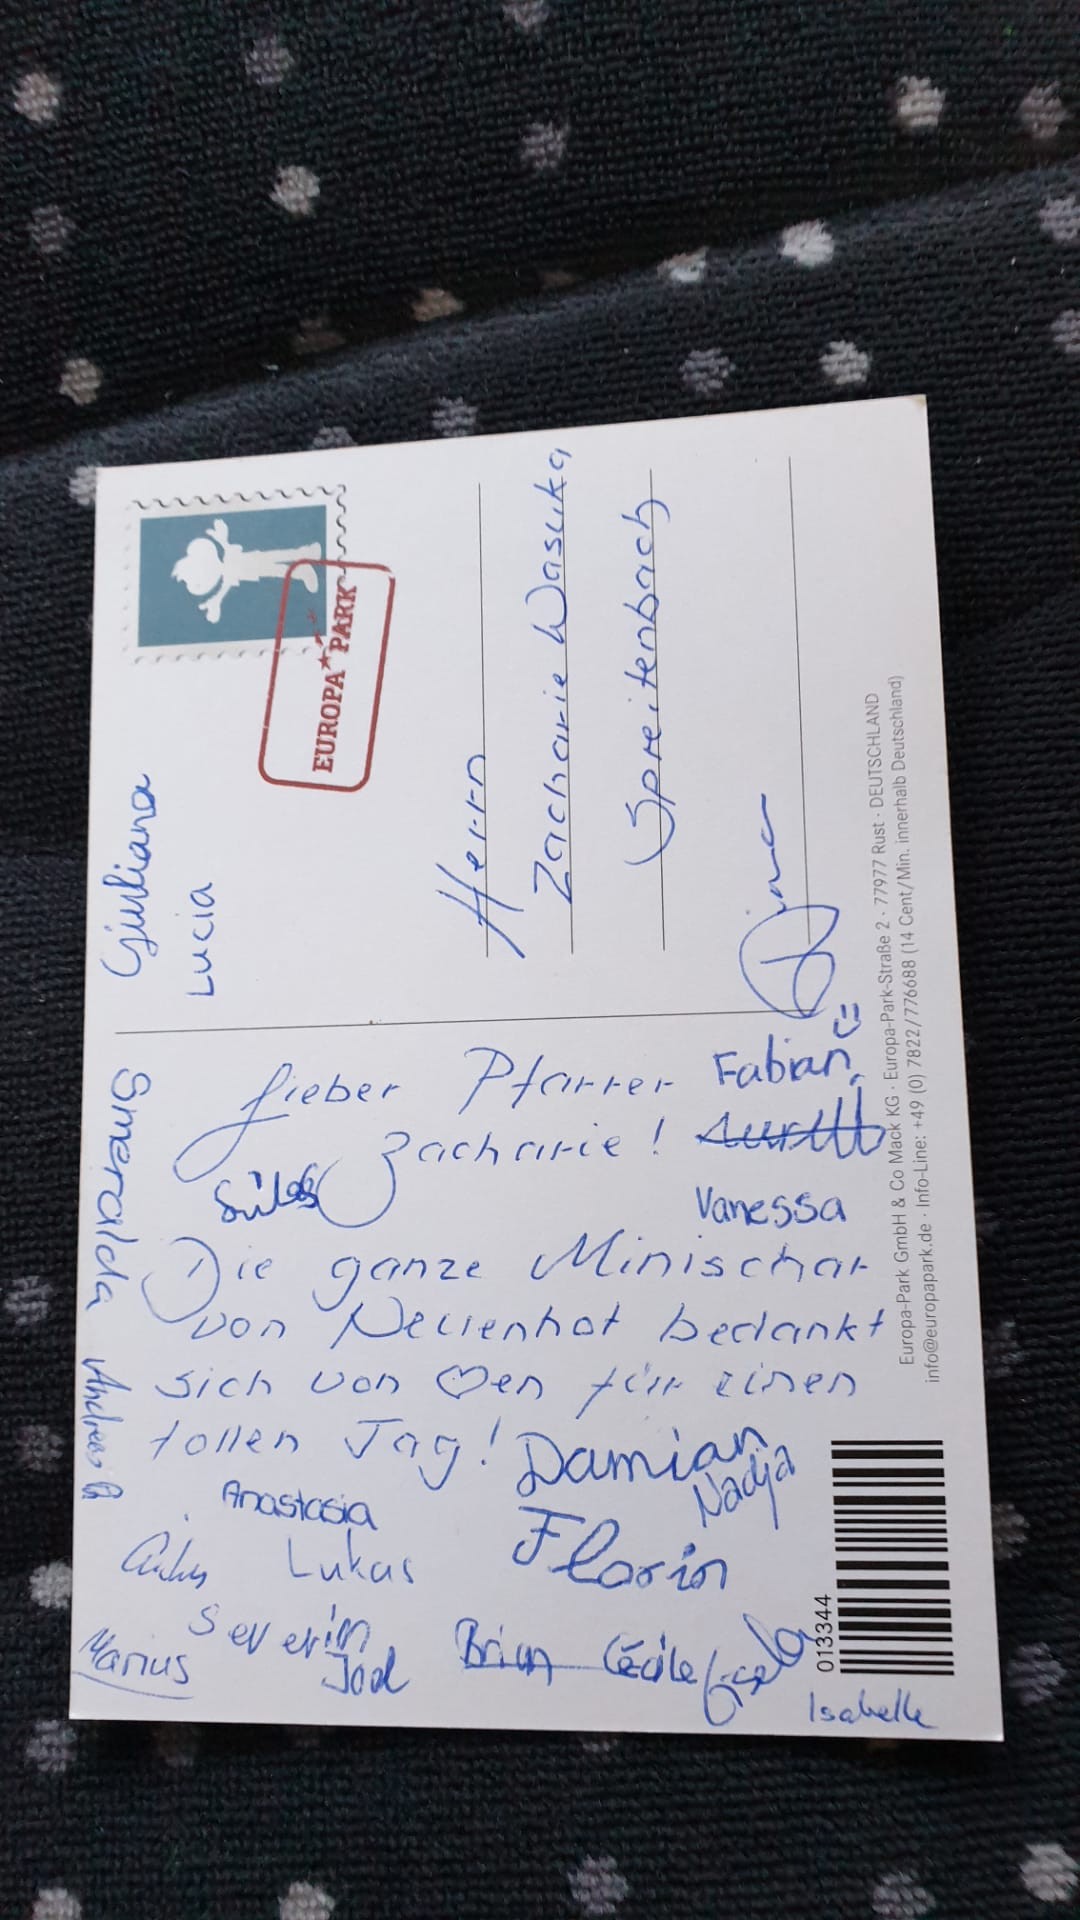 Smeralda Andrea B.
Lieber Pfarrer
Zacharie!
Silas
Fabian
Vanessa
Die ganze Minischar
von Neuenhof bedankt
sich von ♡en für einen
tollen Tag!
Damian
Nadja
Anastasia
Lukas
Florin
Severin
Marius
Joel
Brian
Cécile
Gisela
Isabelle
013344
Giuliana
Lucia
EUROPA PARK
Herrn
Zacharie Wasuka
Spreitenbach
Europa-Park GmbH & Co Mack KG · Europa-Park-Straße 2 · 77977 Rust · DEUTSCHLAND
info@europapark.de · Info-Line: +49 (0) 7822/776688 (14 Cent/Min. innerhalb Deutschland)